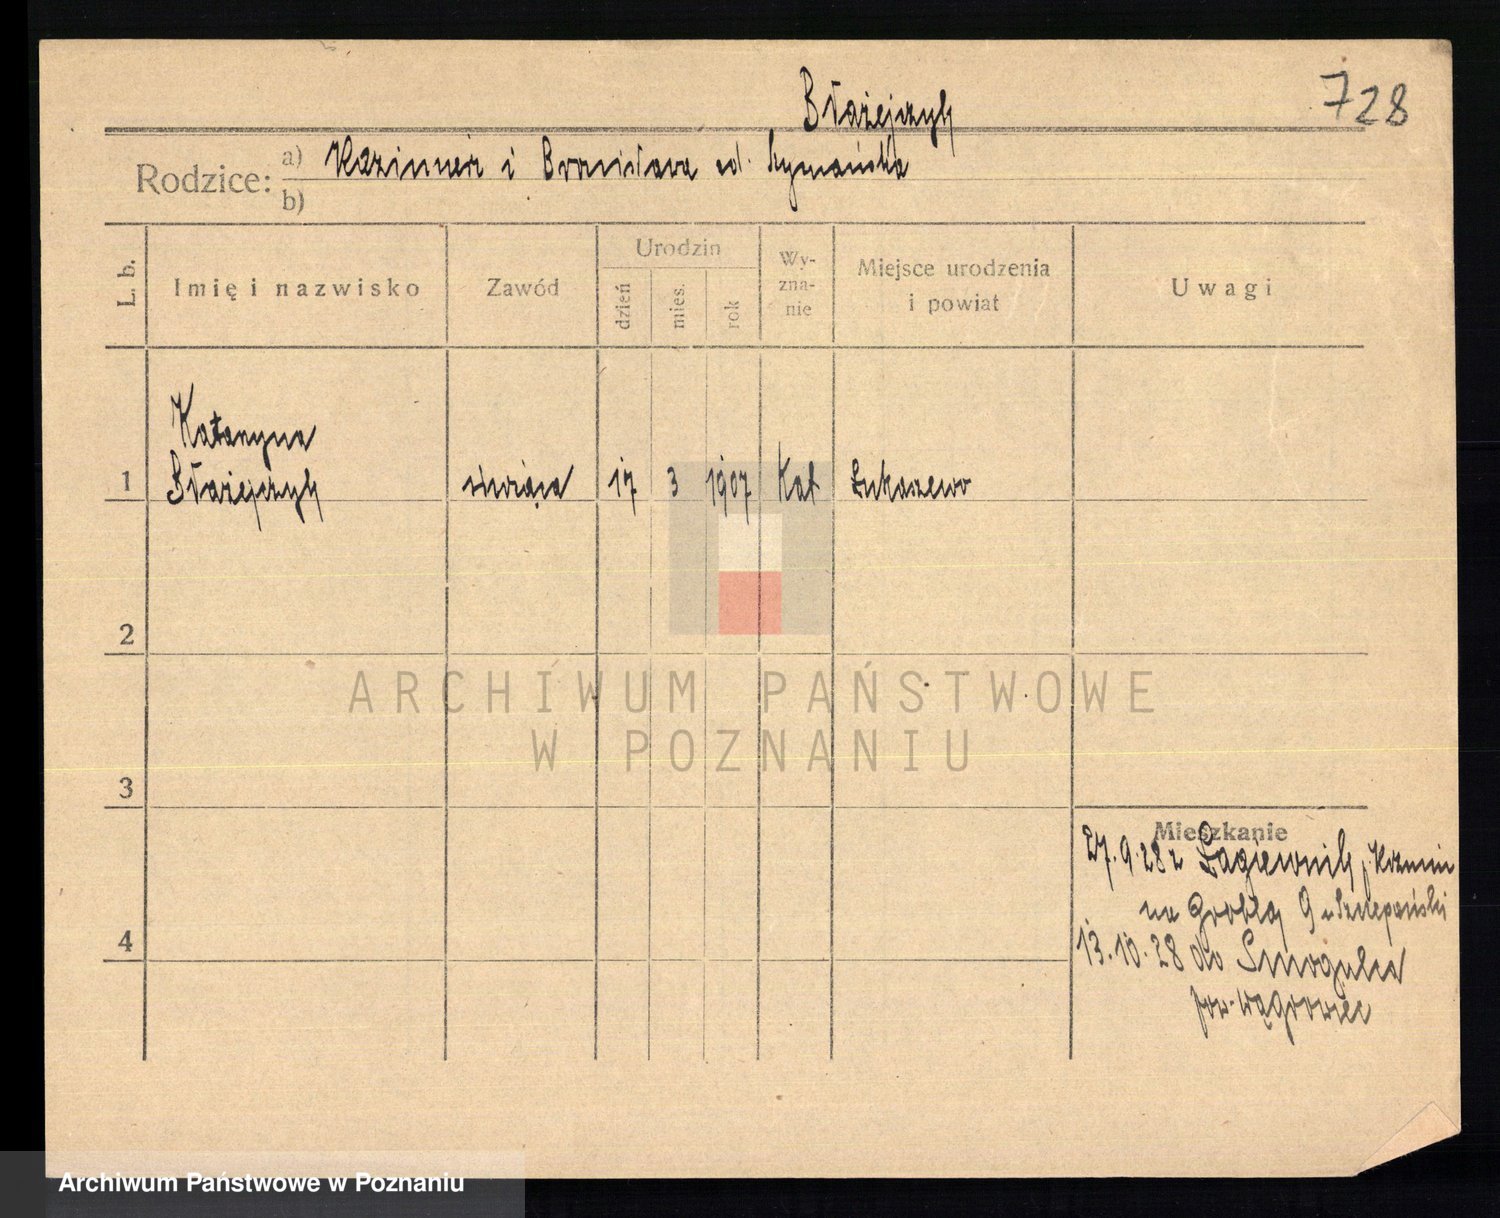 728
Błażejczyk
Rodzice: a) Kazimierz i Bronisława
b)
L. b.
Imię i nazwisko
Zawód
Urodzin
dzień
mies.
rok
Wy-
zna-
nie
Miejsce urodzenia
i powiat
Uwagi
Katarzyna
1 Błażejczyk służąca 17 3 1907 Kat Łukaszewo
2
ARCHIWUM PAŃSTWOWE
W POZNANIU
3
Mieszkanie
27.9.28 z Łagiewnik
na Groblą 9 u Szczepański
4
13.10.28 do Smogulca
pow. Wągrowiec
Archiwum Państwowe w Poznaniu